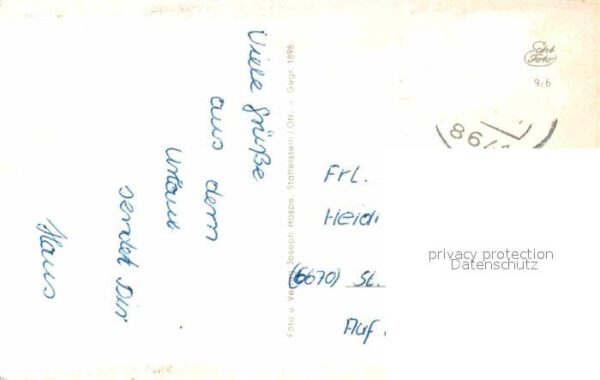 Viele Grüße
aus dem
Urlaub
sendet Dir
Hans
Foto u. Verlag Joseph Haspe, Staffelstein/Ofr. · Gegr. 1896
Echt
Foto
9/6
86
Frl.
Heidi
(6670) St.
Auf
privacy protection
Datenschutz